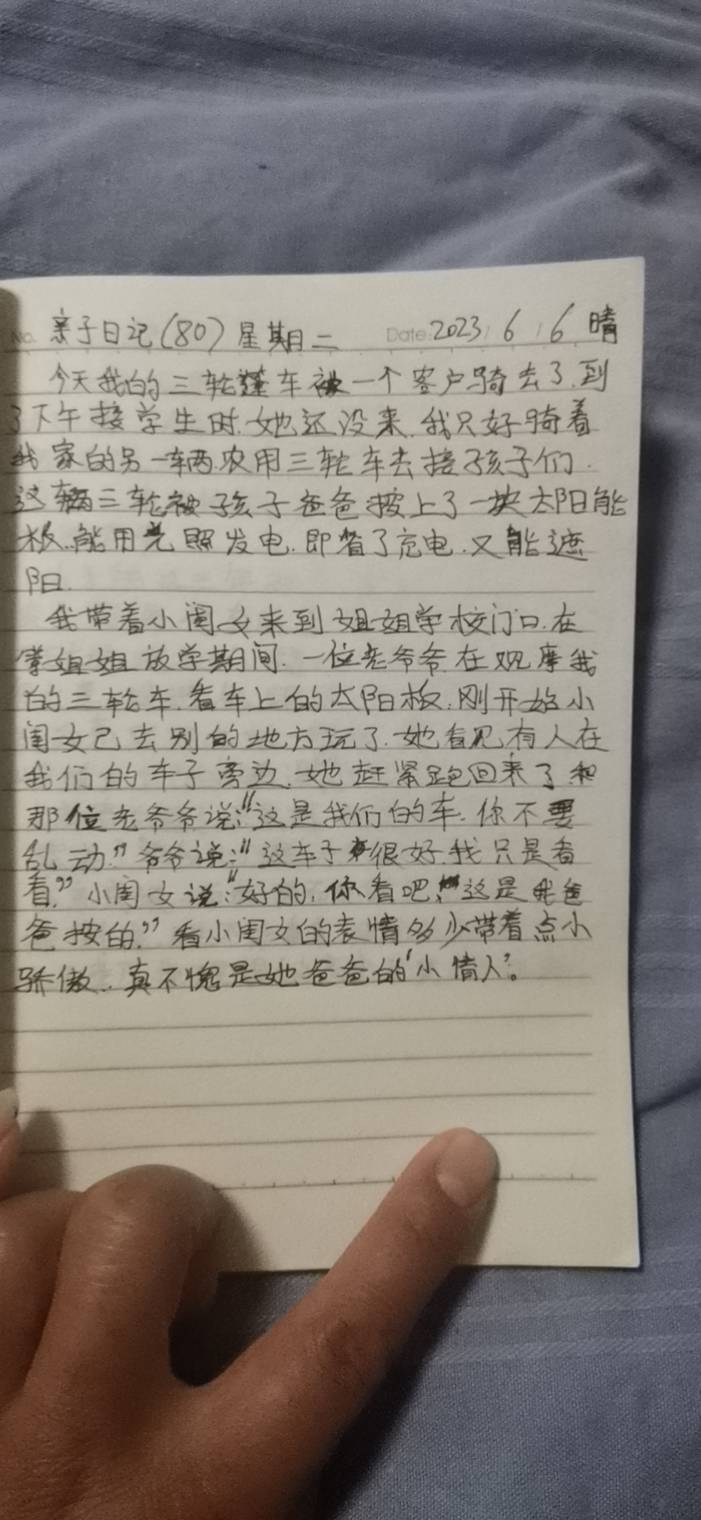 No. 亲子日记(80)星期二 Date: 2023 / 6 / 6 晴
今天我的三轮篷车被一个客户骑去了.到
了下午接学生时.她还没来.我只好骑着
我家的另一辆.农用三轮车去接孩子们.
这辆三轮被孩子爸爸按上了一块太阳能
板.能用光照发电.即省了充电.又能遮
阳.
我带着小闺女来到姐姐学校门口.在
等姐姐放学期间.一位老爷爷在观摩我
的三轮车.看车上的太阳板.刚开始小
闺女己去别的地方玩了.她看见有人在
我们的车子旁边.她赶紧跑回来了.和
那位老爷爷说:"这是我们的车.你不要
乱动."爷爷说:"这车子很好.我只是看
看."小闺女说:"好的,你看吧!这是我爸
爸按的."看小闺女的表情多少带着点小
骄傲..真不愧是她爸爸的'小情人'。